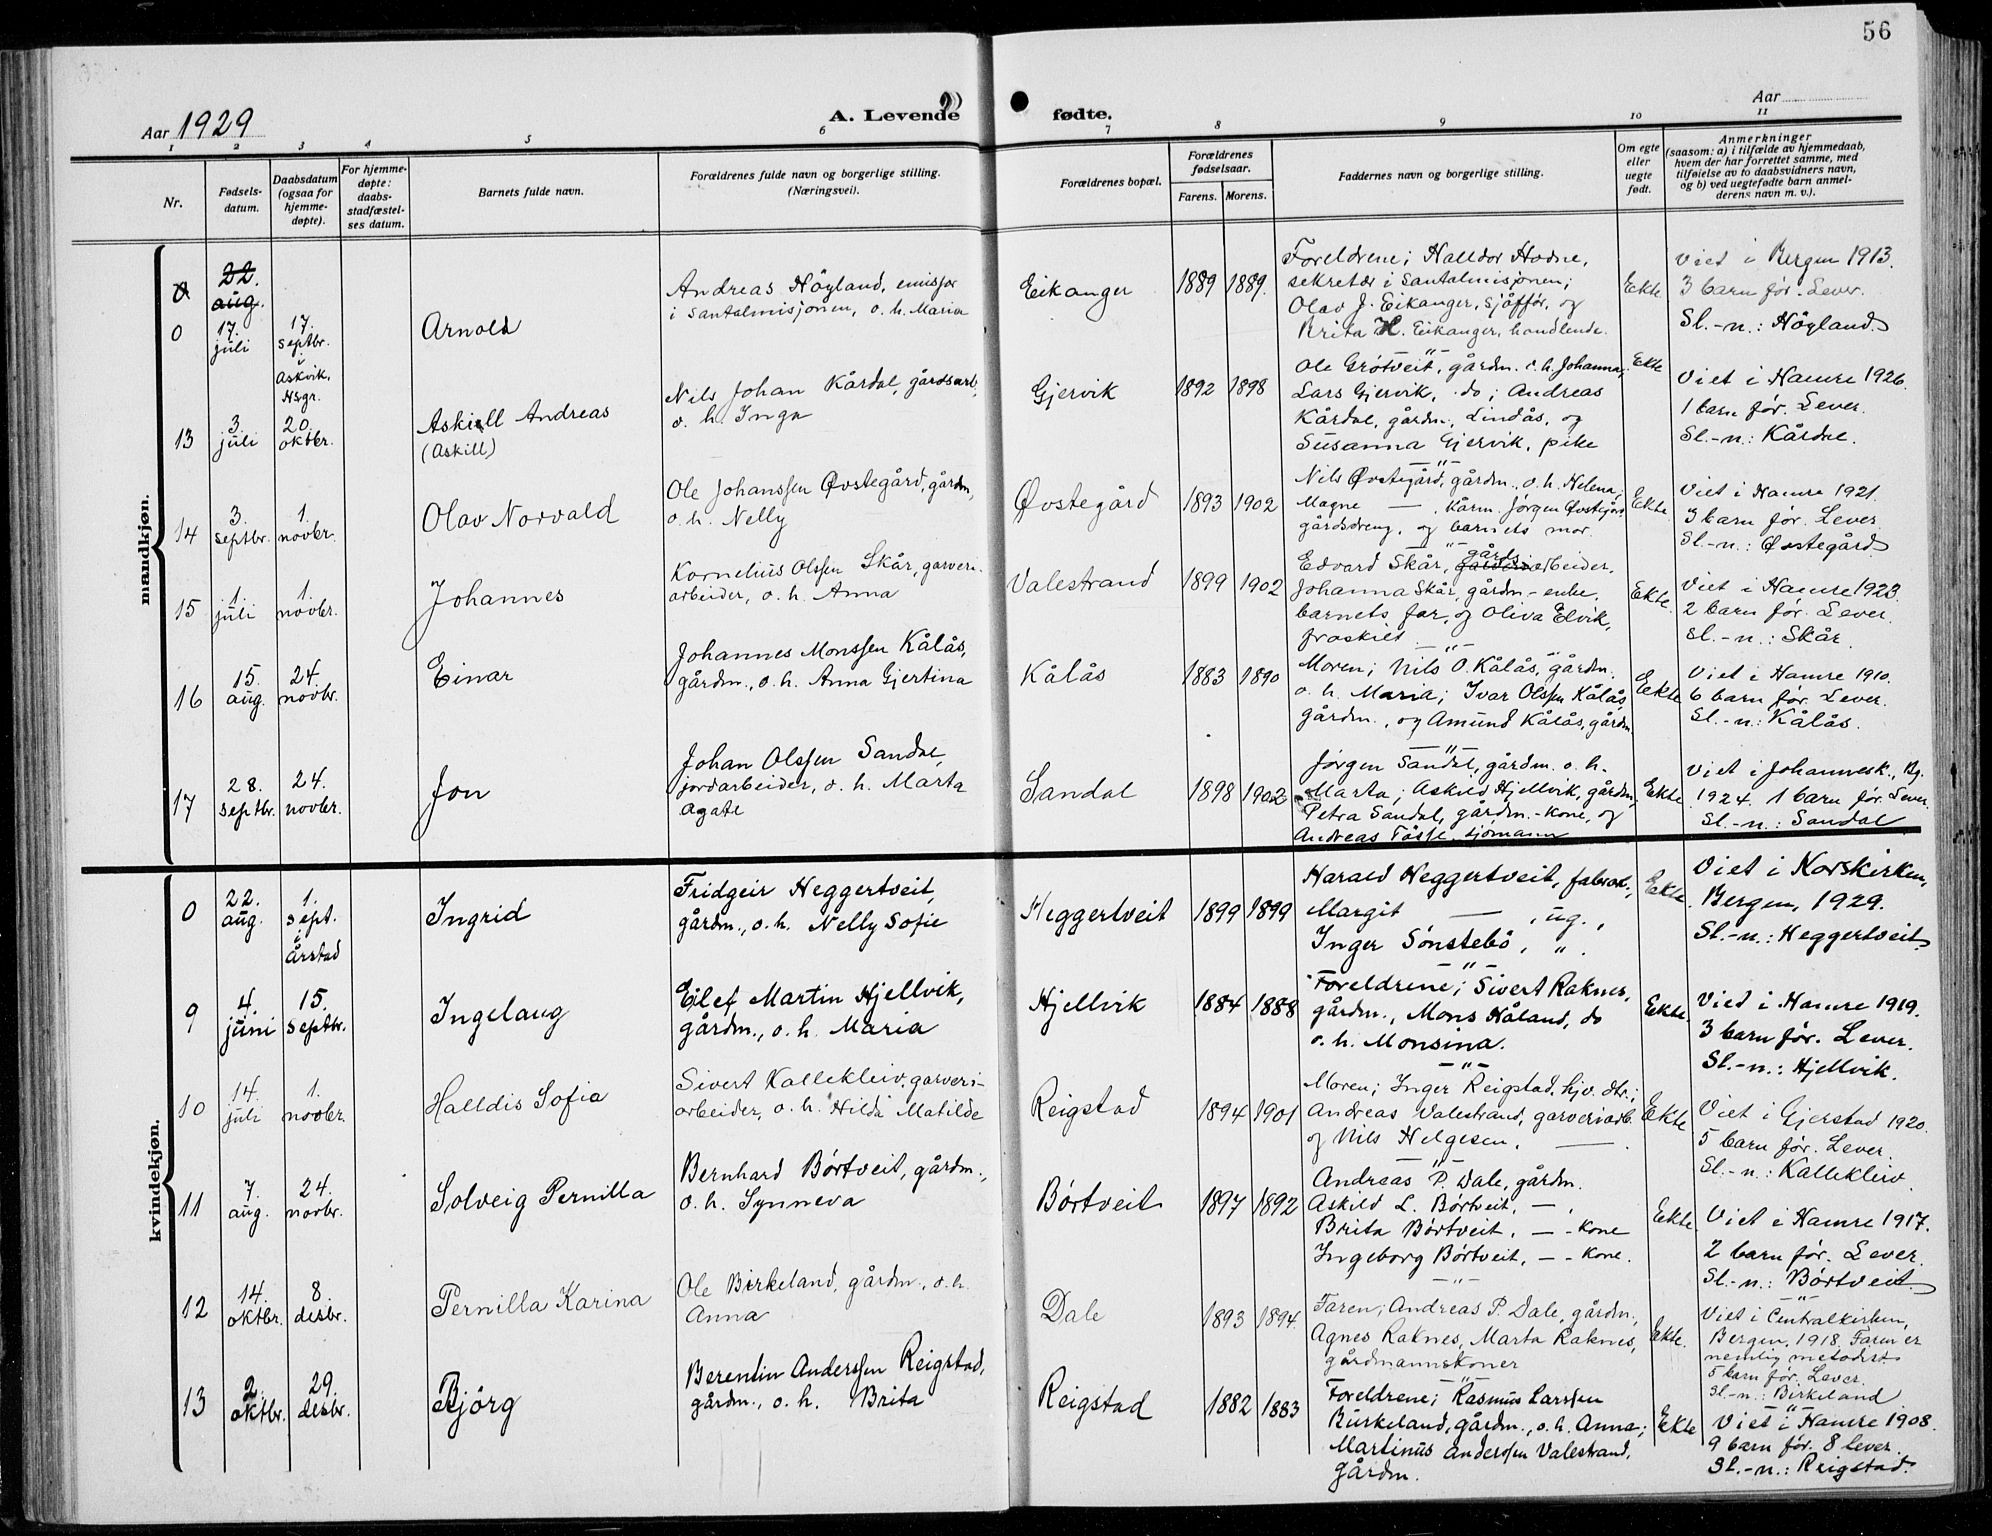 56
Aar 1929
A. Levende fødte.
Aar
1 2 3 4 5 6 7 8 9 10 11
Nr.
Fødsels-
datum.
Daabsdatum
(ogsaa for
hjemme-
døpte).
For hjemme-
døpte:
daabs-
stadfæstel-
ses datum.
Barnets fulde navn.
Forældrenes fulde navn og borgerlige stilling.
(Næringsvei).
Forældrenes bopæl.
Forældrenes
fødselsaar.
Farens. Morens.
Faddernes navn og borgerlige stilling.
Om egte
eller
uegte
født.
Anmerkninger
(saasom: a) i tilfælde av hjemmedaab,
hvem der har forrettet samme, med
tilføielse av to daabsvidners navn,
og b) ved uegtefødte barn anmel-
derens navn m. v.).
mandkjøn.
0
22.
aug.
0
17.
juli
17.
septbr.
i
Askvik,
Hsgr.
Arnold
Andreas Höyland, emisjær
i Santalmisjonen, o. h. Maria
Eikanger
1889 1889.
Foreldrene; Halldor Hodne,
sekretær i Santalmisjonen;
Olav J. Eikanger, sjåffør, og
Brita H. Eikanger, handlende.
Ekte
Vied i Bergen 1913.
3 barn før. Lever.
Sl.-n.: Höyland
13
3.
juli
20.
oktbr.
Askjell Andreas
(Askill)
Nils Johan Kårdal, gårdsarb.,
o. h. Inga
Gjervik
1892 1898
Ole Grøtveit, gårdm. o. h. Johanna,
Lars Gjervik, do; Andreas
Kårdal, gårdm., Lindås, og
Susanna Gjervik, pike
Ekte
Viet i Hamre 1926.
1 barn før. Lever.
Sl.-n.: Kårdal.
14
3.
septbr.
1.
novbr.
Olav Norvald
Ole Johanssen Øvstegård, gårdm,
o. h. Nelly
Øvstegård
1893 1902
Nils Øvstegård, gårdm., o. h. Helena,
Magne — , Kårm. Jørgen Øvstegård
gårdsdreng, og barnets mor.
Ekte
Viet i Hamre 1921.
3 barn før. Lever.
Sl.-n.: Øvstegård
15
1.
juli
1.
novbr.
Johannes
Kornelius Olssen Skår, garveri-
arbeider, o. h. Anna
Valestrand
1899 1902
Edvard Skår, gårdsarbeider,
Johanna Skår, gårdm-enke,
barnets far, og Oliva Elvik,
fraskilt
Ekte.
Viet i Hamre 1923.
2 barn før. Lever.
Sl.-n.: Skår.
16
15.
aug.
24.
novbr.
Einar
Johannes Monssen Kålås,
gårdm., o. h. Anna Gjertina
Kålås
1883 1890
Moren; Nils O. Kålås, gårdm.
o. h. Maria; Ivar Olssen Kålås
gårdm., og Amund Kålås, gårdm
Ekte
Viet i Hamre 1910.
6 barn før. Lever.
Sl.-n.: Kålås.
17
28.
septbr.
24.
novbr.
Jon
Johan Olssen Sandal,
jordarbeider, o. h. Marta
Agate
Sandal
1898 1902
Jørgen Sandal, gårdm. o. h.
Marta; Askild Hjellvik, gårdm,
Petra Sandal, gårdm.-kone, og
Andreas Tösse, sjömann
Ekte
Viet i Johannesk., Bg.
1924. 1 barn før. Lever.
Sl.-n.: Sandal
kvindekjøn.
0
22.
aug.
1.
sept.
i
Årstad
Ingrid
Fridgeir Heggertveit,
gårdm., o. h. Nelly Sofie
Heggertveit
1899 1899
Harald Heggertveit, fabrak.,
Margit — , ug.,
Inger Sönstebö, „ .
Ekte
Viet i Korskirken,
Bergen, 1929.
Sl.-n.: Heggertveit.
9
4.
juni
15.
septbr.
Ingelaug
Eilef Martin Hjellvik,
gårdm., o. h. Maria
Hjellvik
1884 1888
Foreldrene; Sivert Raknes,
gårdm., Mons Håland, do
o. h. Monsina.
Ekte.
Vied i Hamre 1919.
3 barn før. Lever.
Sl.-n.: Hjellvik.
10
14.
juli
1.
novbr.
Halldis Sofia
Sivert Kallekleiv, garveri-
arbeider, o. h. Hilda Matilde
Reigstad
1894 1901
Moren; Inger Reigstad, hjv. dtr.;
Andreas Valestrand, garveriarb.
og Nils Helgesen, —
Ekte
Viet i Gjerstad 1920.
5 barn før. Lever.
Sl.-n.: Kallekleiv.
11
7.
aug.
24.
novbr.
Solveig Pernilla
Bernhard Börtveit, gårdm.,
o. h. Synneva
Börtveit
1897 1892
Andreas P. Dale, gårdm.
Askild L. Börtveit, — ,
Brita Börtveit, — - kone
Ingeborg Börtveit, — - kone.
Ekte
Viet i Hamre 1917.
2 barn før. Lever.
Sl.-n.: Börtveit.
12
14.
oktbr.
8.
desbr.
Pernilla Karina
Ole Birkeland, gårdm., o. h.
Anna
Dale
1893 1894.
Faren; Andreas P. Dale, gårdm,
Agnes Raknes, Marta Raknes,
gårdmannskoner
Ekte.
Viet i Centralkirken,
Bergen, 1918. Faren er
nemlig metodist.
5 barn før. Lever.
Sl.-n.: Birkeland
13
2.
oktbr.
29.
desbr.
Bjørg
Berentin Anderssen Reigstad,
gårdm., o. h. Brita
Reigstad
1882 1883
Foreldrene; Rasmus Larssen
Burkeland, gårdm., o. h. Anna;
Martinus Anderssen Valestrand,
gårdm.
Ekte
Viet i Hamre 1908.
9 barn før. 8 lever.
Sl.-n.: Reigstad.